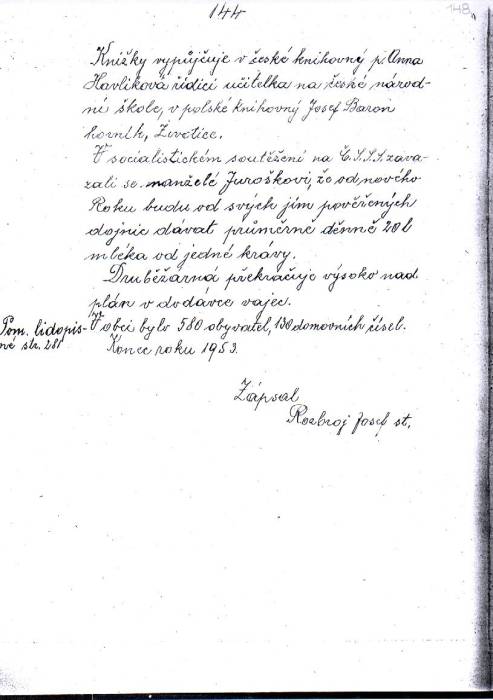 144
148
Knížky vypůjčuje v české knihovný p. Anna
Havlíková řídící učitelka na české národ-
ní škole, v polské knihovný Josef Baron
horník, Životice.
V socialistickém soutěžení na Č.S.S.S. zava-
zali se manželé Juroškovi, že od nového
Roku budu od svých jím pověřených
dojnic dávat průměrně denně 20 l
mléka od jedné krávy.
Druběžárná překračuje výsoko nad
plán v dodávce vajec.
Pom. lidopis-
né str. 281
V obci bylo 580 obyvatel, 130 domovních čísel.
Konec roku 1953.
Zápsal
Rozbroj Josef st.